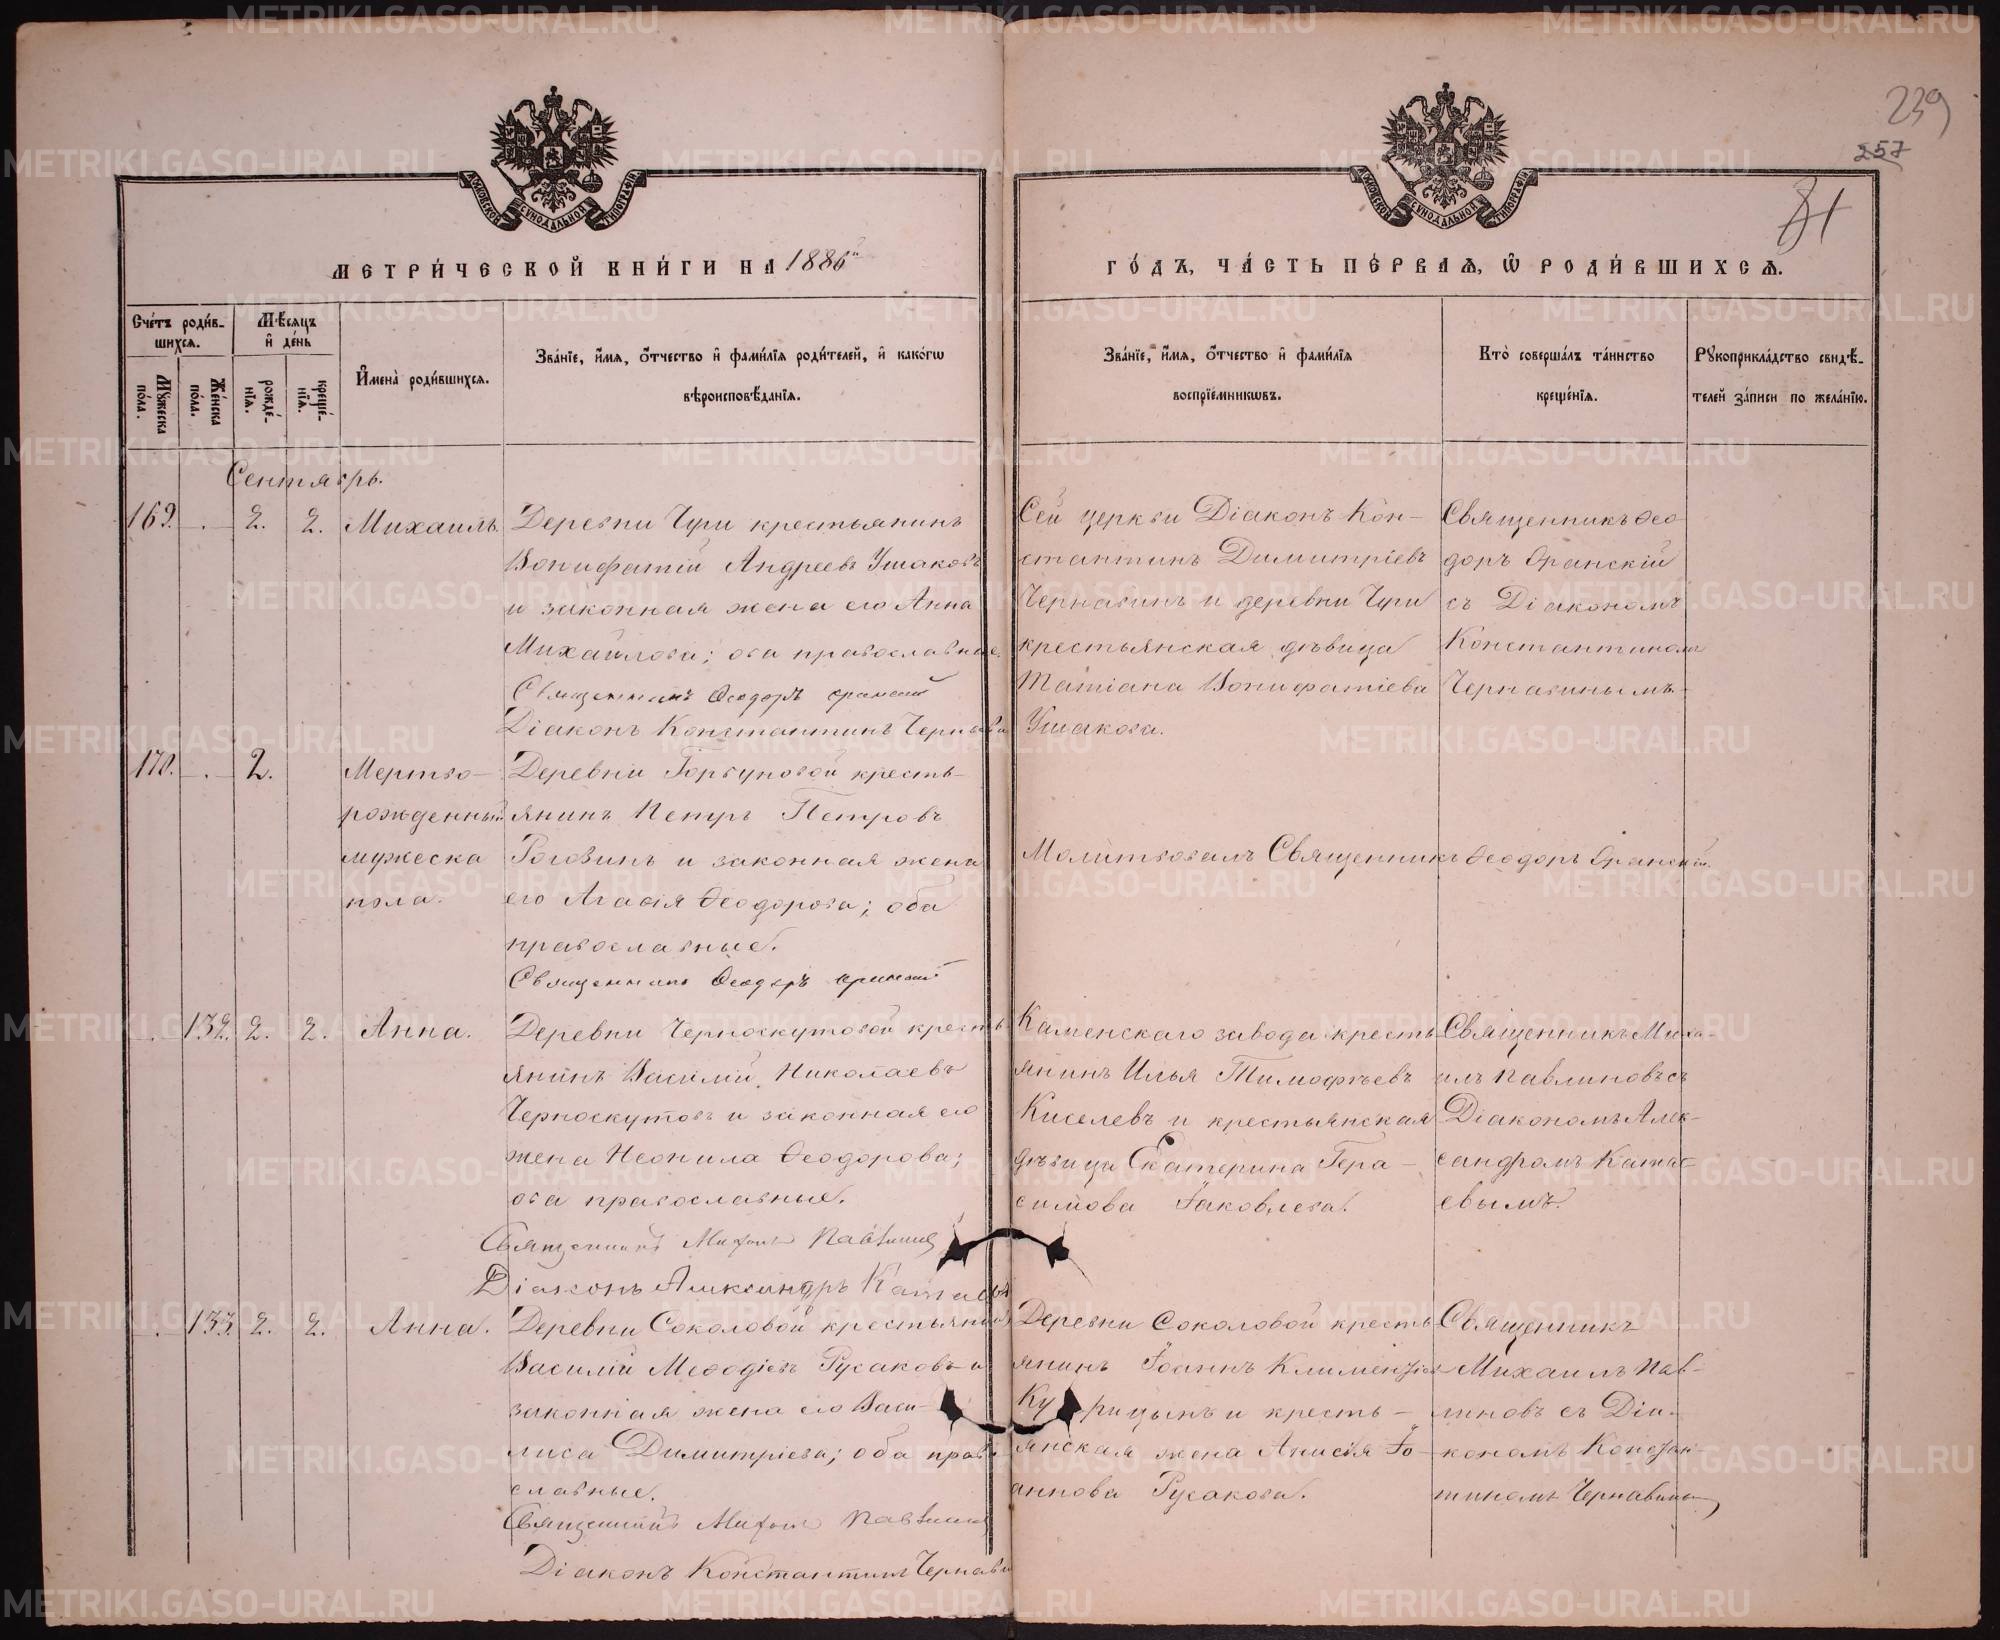 239
257
81
МОСКОВСКОЙ СѴНОДАЛЬНОЙ ТИПОГРАФІИ
МОСКОВСКОЙ СѴНОДАЛЬНОЙ ТИПОГРАФІИ
МЕТРИ́ЧЕСКОЙ КНИ́ГИ НА 1886й
ГО́ДЪ, ЧА́СТЬ ПЕ́РВАЯ, Ѡ РОДИ́ВШИХСЯ.
Сче́тъ роди́в-
шихся.
Мѣ́сяцъ
и҆ де́нь
Мꙋ́жеска
по́ла.
Же́нска
по́ла.
рожде́-
нїя.
креще́-
нїя.
И҆мена̀ роди́вшихся.
Зва́нїе, и҆́мя, ѻ҆́тчество и҆ фами́лїя роди́телей, и҆ како́гѡ
вѣроисповѣ́данїя.
Зва́нїе, и҆́мя, ѻ҆́тчество и҆ фами́лїя
воспрїе́мникѡвъ.
Кто̀ соверша́лъ та́инство
креще́нїя.
Рꙋкоприкла́дство свидѣ́-
телей за́писи по жела́нїю.
Сентябрь.
169. . 2. 2. Михаилъ.
Деревни Чуги крестьянинъ
Вонифатій Андреевъ Ушаковъ
и законная жена его Анна
Михайлова; оба православные.
Священникъ Ѳеодоръ Оранскій
Діаконъ Константинъ Чернави
Сей церкви Діаконъ Кон-
стантинъ Димитріевъ
Чернавинъ и деревни Чуги
крестьянская дѣвица
Татіана Вонифатіева
Ушакова.
Священникъ Ѳео-
доръ Оранскій
съ Діакономъ
Константиномъ
Чернавинымъ.
170. . 2.
Мертво-
рожденный
мужеска
пола.
Деревни Горбуновой кресть-
янинъ Петръ Петровъ
Роговинъ и законная жена
его Агафія Ѳеодорова; оба
православные.
Священникъ Ѳеодоръ Оранскій
Молитвовалъ Священникъ Ѳеодоръ Оранскій.
. 132. 2. 2. Анна.
Деревни Черноскутовой кресть
янинъ Василій Николаевъ
Черноскутовъ и законная его
жена Неонила Ѳеодорова;
оба православные.
Священникъ Михаилъ Павлиновъ
Діаконъ Александръ Катаевъ
Каменскаго завода кресть
янинъ Илья Тимофѣевъ
Киселевъ и крестьянская
дѣвица Екатерина Гера-
симова Іаковлева.
Священникъ Миха-
илъ Павлиновъ съ
Діакономъ Алек-
сандромъ Ката-
евымъ.
. 133. 2. 2. Анна.
Деревни Соколовой крестьянинъ
Василій Меѳодіевъ Русаковъ и
законная жена его Васи-
лиса Димитріева; оба право
славные.
Священникъ Михаилъ Павлиновъ
Діаконъ Константинъ Чернави
Деревни Соколовой кресть
янинъ Іоаннъ Климентіев
Ку рицынъ и кресть-
янская жена Анисія Іо-
аннова Русакова.
Священникъ
Михаилъ Пав-
линовъ съ Діа-
кономъ Констан
тиномъ Чернавинымъ
METRIKI.GASO-URAL.RU